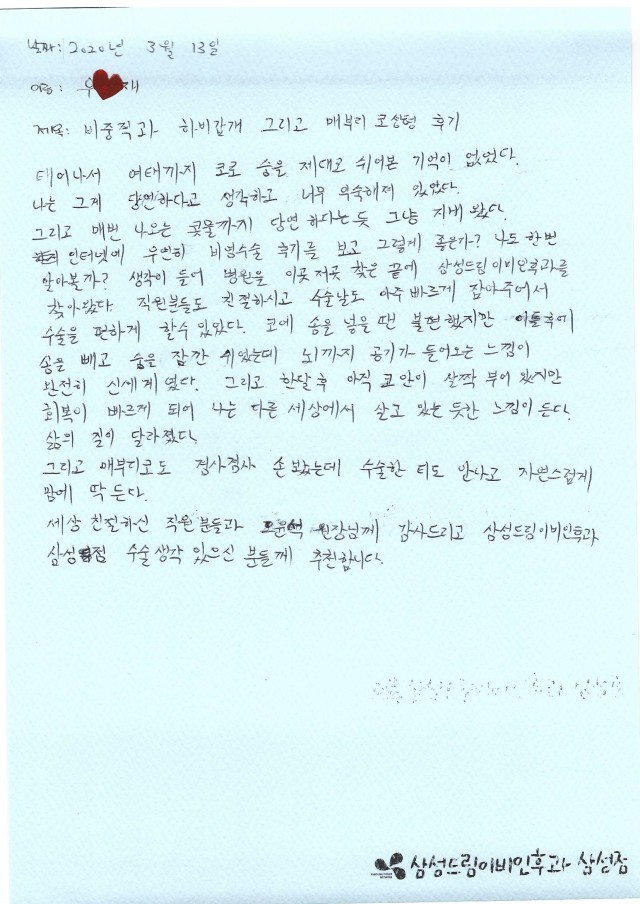 날짜: 2020년 3월 13일
이름: 우 재
제목: 비중격과 하비갑개 그리고 매부리 코성형 후기
태어나서 여태까지 코로 숨을 제대로 쉬어본 기억이 없었다.
나는 그게 당연하다고 생각하고 너무 익숙해져 있었다.
그리고 매번 나오는 콧물까지 당연 하다는 듯 그냥 지내 왔다.
인터넷에 우연히 비염수술 후기를 보고 그렇게 좋은가? 나도 한번
알아볼까? 생각이 들어 병원을 이곳 저곳 찾은 끝에 삼성드림이비인후과를
찾아왔다. 직원분들도 친절하시고 수술날도 아주 빠르게 잡아주어서
수술을 편하게 할수 있었다. 코에 솜을 넣을 땐 불편했지만 이틀후에
솜을 빼고 숨을 잠깐 쉬었는데 뇌까지 공기가 들어오는 느낌이
완전히 신세계였다. 그리고 한달후 아직 코안이 살짝 부어 있지만
회복이 빠르게 되어 나는 다른 세상에서 살고 있는 듯한 느낌이 든다.
삶의 질이 달라졌다.
그리고 매부리코도 겸사겸사 손 봤는데 수술한 티도 안나고 자연스럽게
맘에 딱 든다.
세상 친절하신 직원분들과 원장님께 감사드리고 삼성드림이비인후과
삼성점 수술생각 있으신 분들께 추천합니다.
삼성드림이비인후과 삼성점